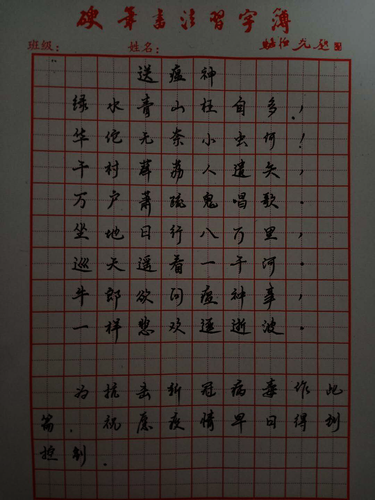 硬筆書法習字簿
班级： 姓名：
送瘟神
绿水青山枉自多，
华佗无奈小虫何！
千村薜荔人遗矢，
万户萧疏鬼唱歌。
坐地日行八万里，
巡天遥看一千河。
牛郎欲问瘟神事，
一样悲欢逐逝波。
为抗击新冠病毒作此
篇．祝愿疫情早日得到
控制．